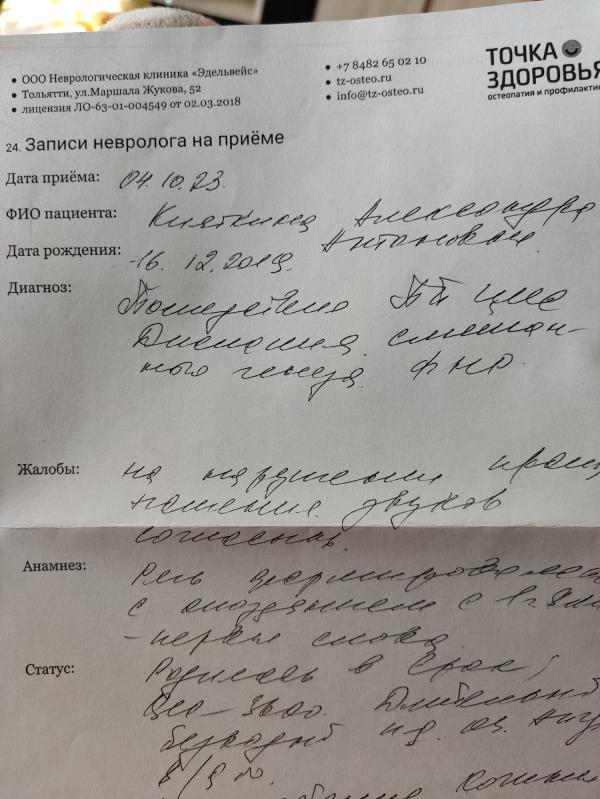 • ООО Неврологическая клиника «Эдельвейс»
• Тольятти, ул.Маршала Жукова, 52
• лицензия ЛО-63-01-004549 от 02.03.2018
• +7 8482 65 02 10
• tz-osteo.ru
• info@tz-osteo.ru
ТОЧКА
ЗДОРОВЬЯ
остеопатия и профилактик
24. Записи невролога на приёме
Дата приёма: 04.10.23.
ФИО пациента: Александра
Антоновна
Дата рождения: 16.12.2019.
Диагноз: Последствия ПП ЦНС
Дислалия смешан-
ного генеза. ФНР.
Жалобы: на нарушения произ
ношения звуков
Анамнез: Речь формировалась
с опозданием с 1 г.
- первые слова
Статус: Родилась в срок,
Длительный
безводный
8/9